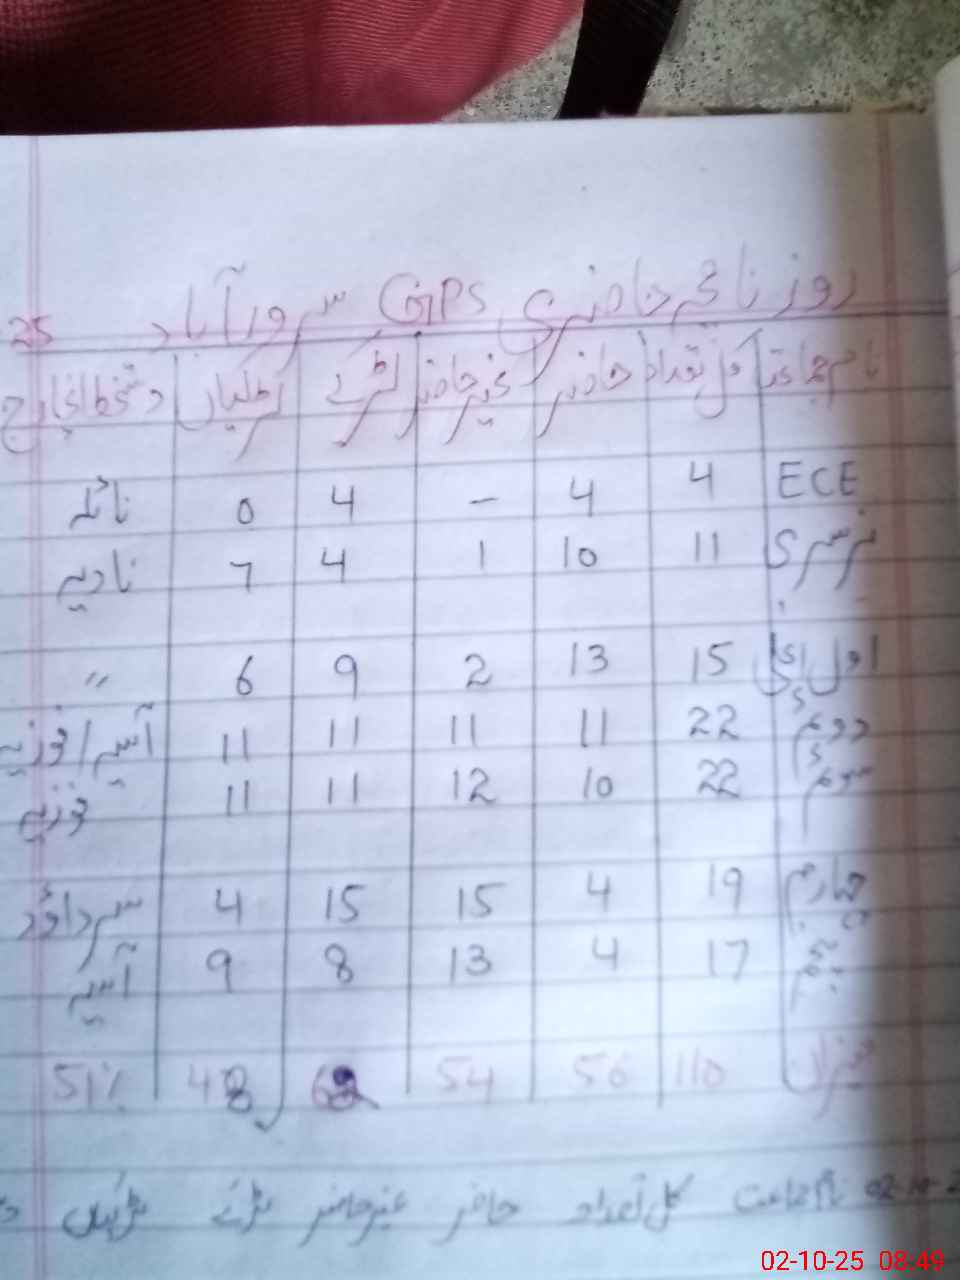 روزنامچہ حاضری GPS سرور آباد 25
نام جماعت کل تعداد حاضر غیر حاضر لڑکے لڑکیاں دستخط انچارج
ECE 4 4 – 4 0 نائلہ
نرسری 11 10 1 4 7 نادیہ
اول 15 13 2 9 6 〃
دوم 22 11 11 11 11 آسیہ/فوزیہ
سوم 22 10 12 11 11 فوزیہ
چہارم 19 4 15 15 4 سر داؤد
پنجم 17 4 13 8 9 آسیہ
میزان 110 56 54 62 48 51%
02-10-2 نام جماعت کل تعداد حاضر غیر حاضر لڑکے لڑکیاں
02-10-25 08:49